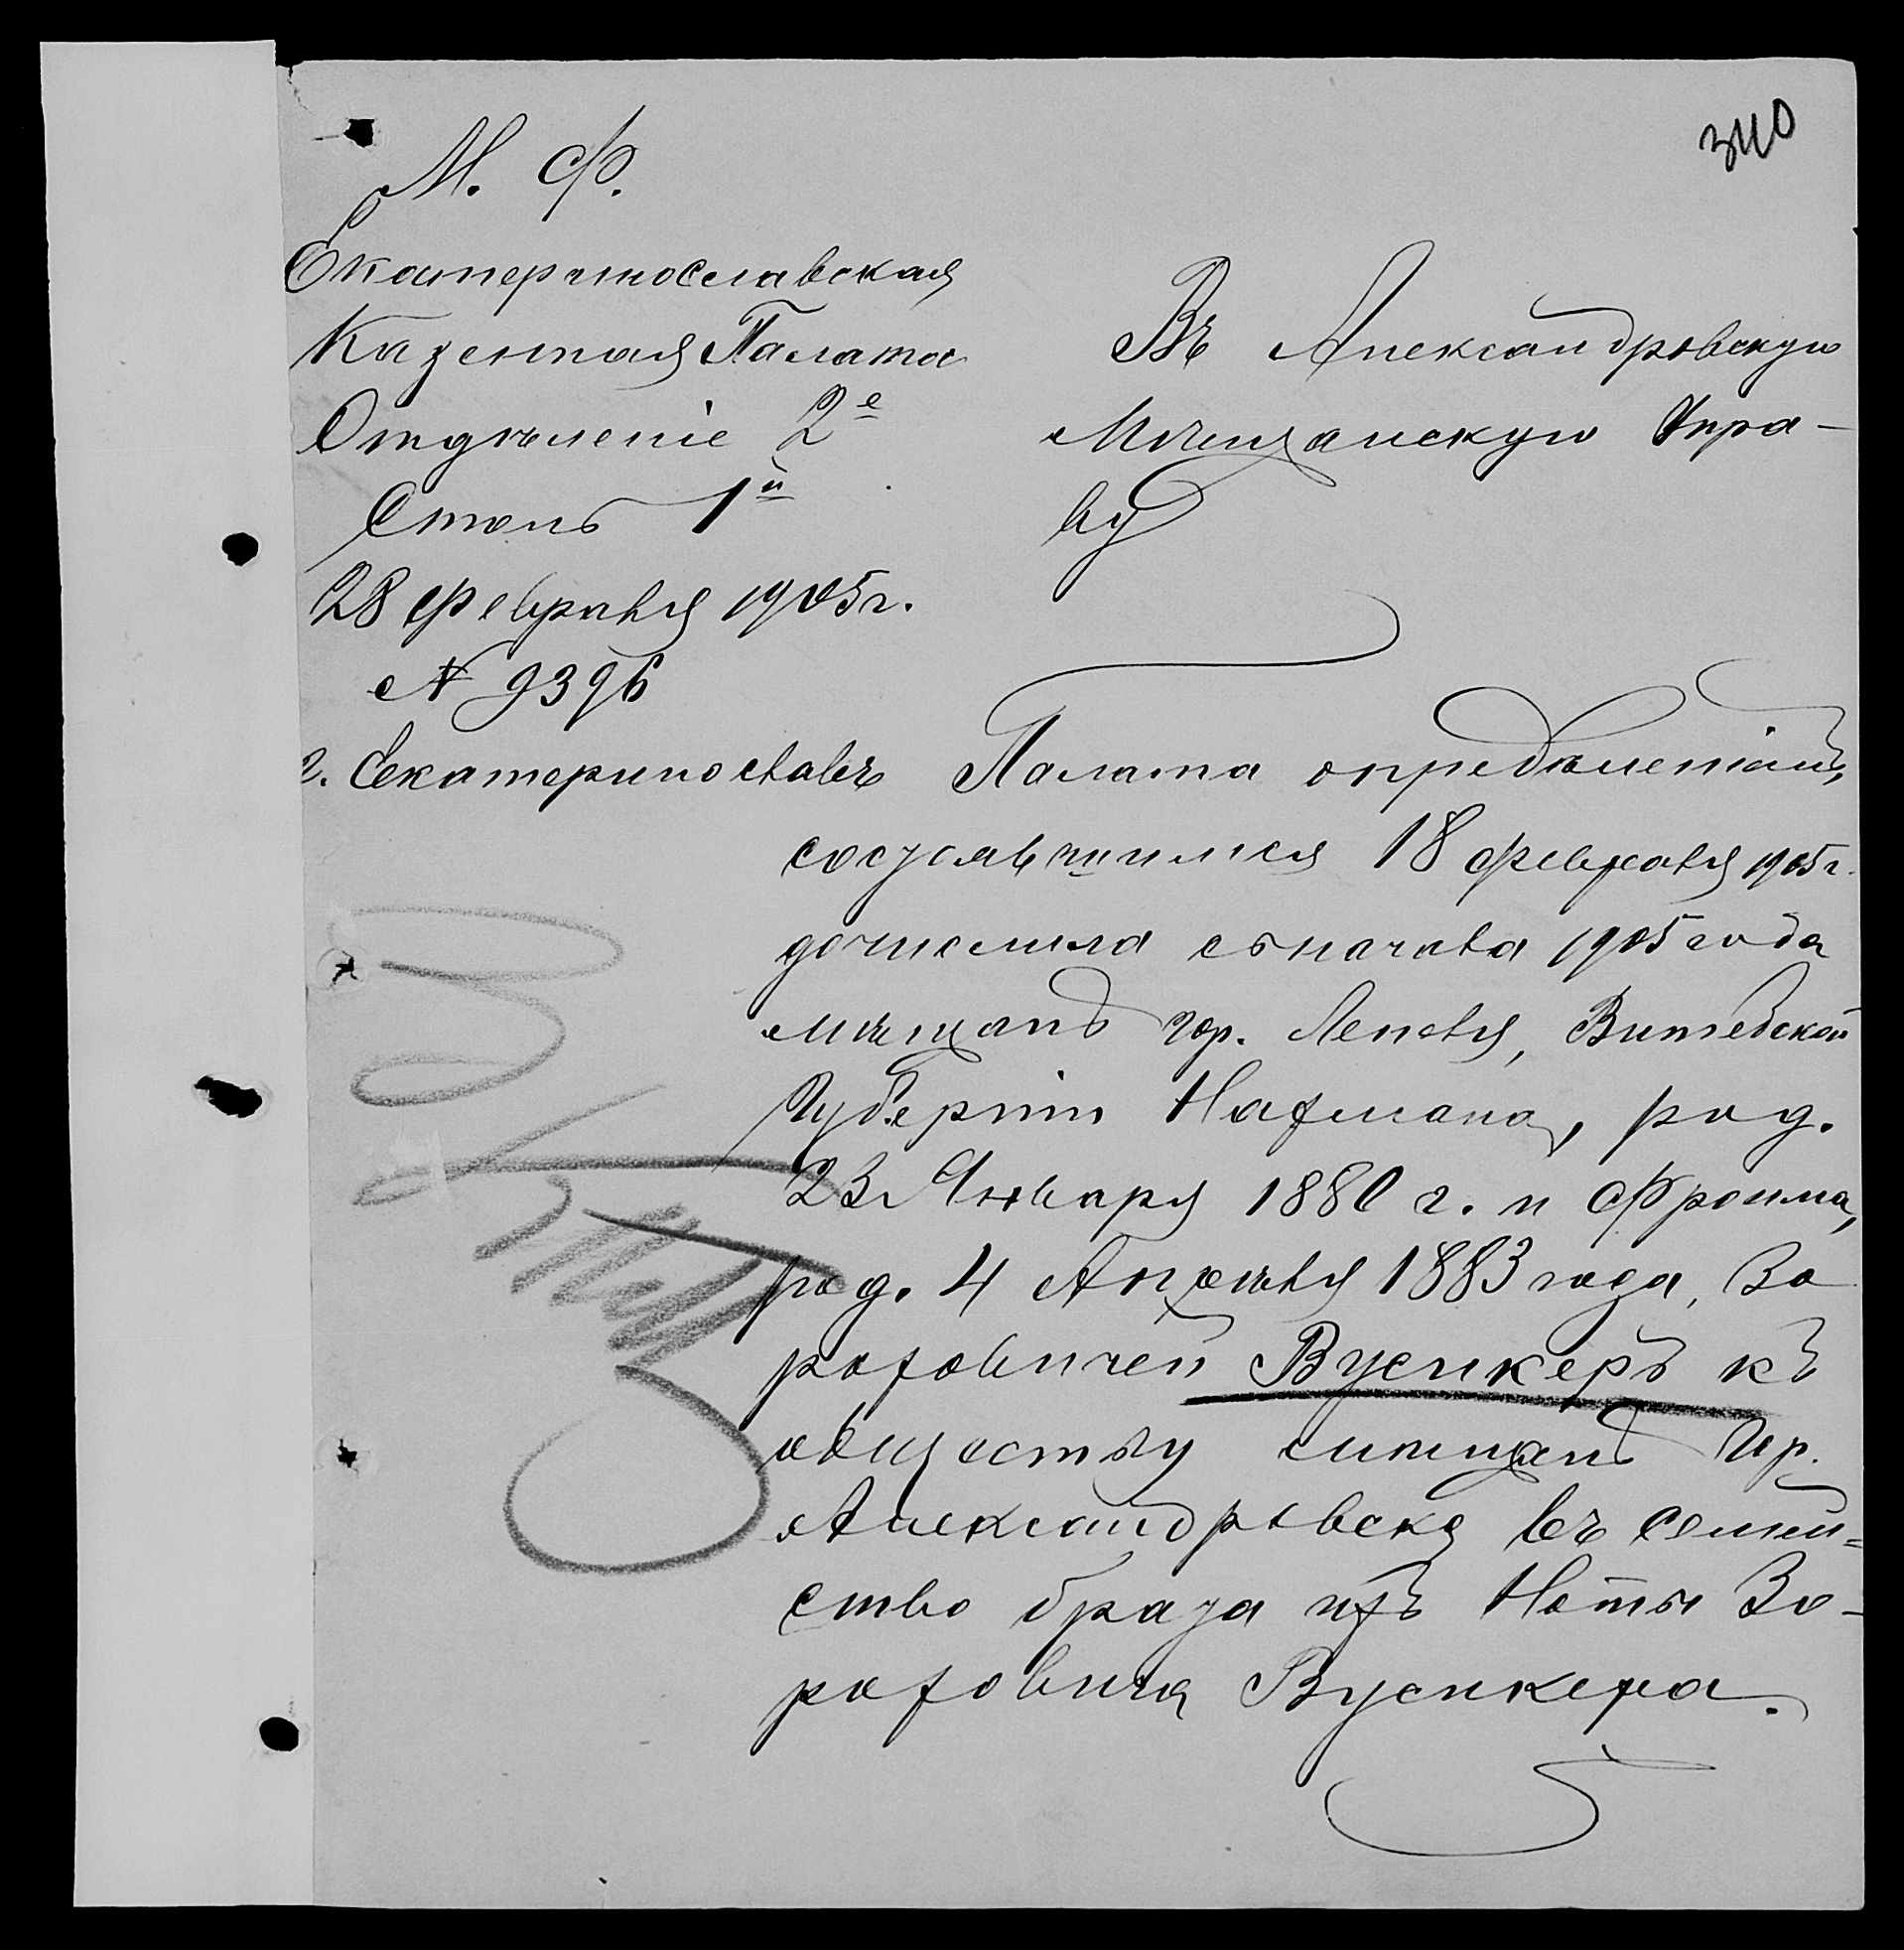 340
М. Ф.
Екатеринославская
Казенная Палата
Отдѣленіе 2е
Столъ 1й
28 февраля 1905 г.
№ 9396
г. Екатеринославъ
Въ Александровскую
Мѣщанскую Упра-
ву
Палата опредѣленіемъ,
состоявшимся 18 февраля 1905 г.
дочислила съ начала 1905 года
мѣщанъ гор. Лепеля, Витебской
Губерніи Нахмана, род.
23 Января 1880 г. и Фроима,
род. 4 Апрѣля 1883 года, Бо
роховичей Вусикеръ къ
обществу мѣщанъ гор.
Александровска въ семей=
ство брата ихъ Ноты Бо-
роховича Вусикера.